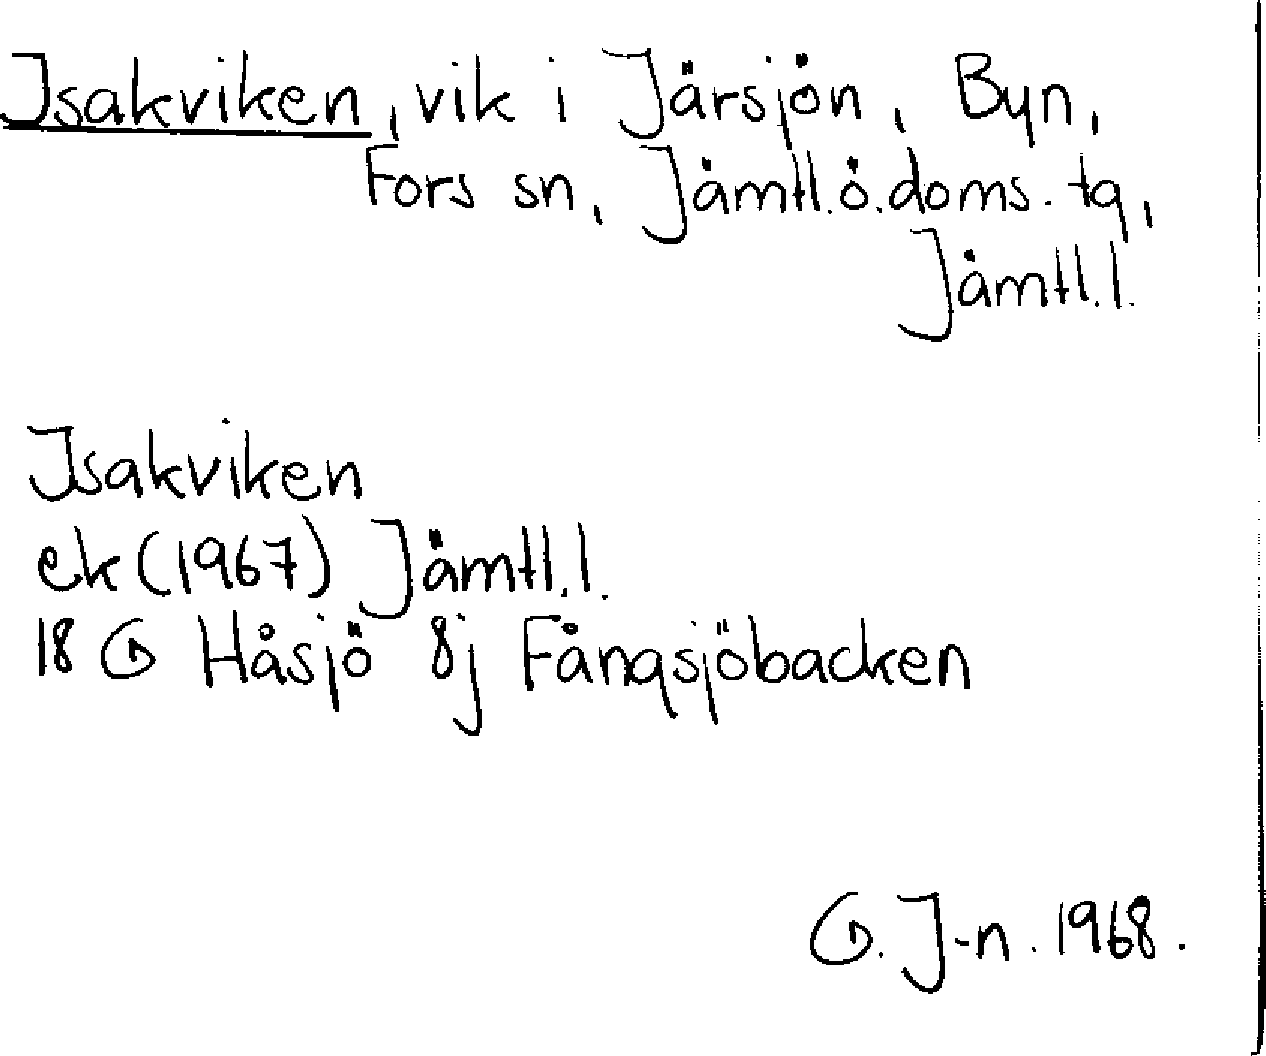 Isakviken, vik i Järsjön, Byn,
Fors sn, Jämtl.ö.doms.tg,
Jämtl.l.
Isakviken
ek (1967) Jämtl.l.
18 G Håsjö 8j Fångsjöbacken
G. J-n. 1968.